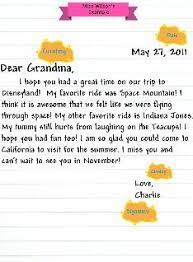 Miss Wilson's
Example
Date
May 27, 2011
Greeting
Dear Grandma,
I hope you had a great time on our trip to
Disneyland! My favorite ride was Space Mountain! I
think it is awesome that we felt like we were flying
through space! My other favorite ride is Indiana Jones.
My tummy still hurts from laughing on the Teacups! I
hope you had fun too! I am so glad you could come to
California to visit for the summer. I miss you and
can't wait to see you in November!
Closing
Love,
Charlie
Signature